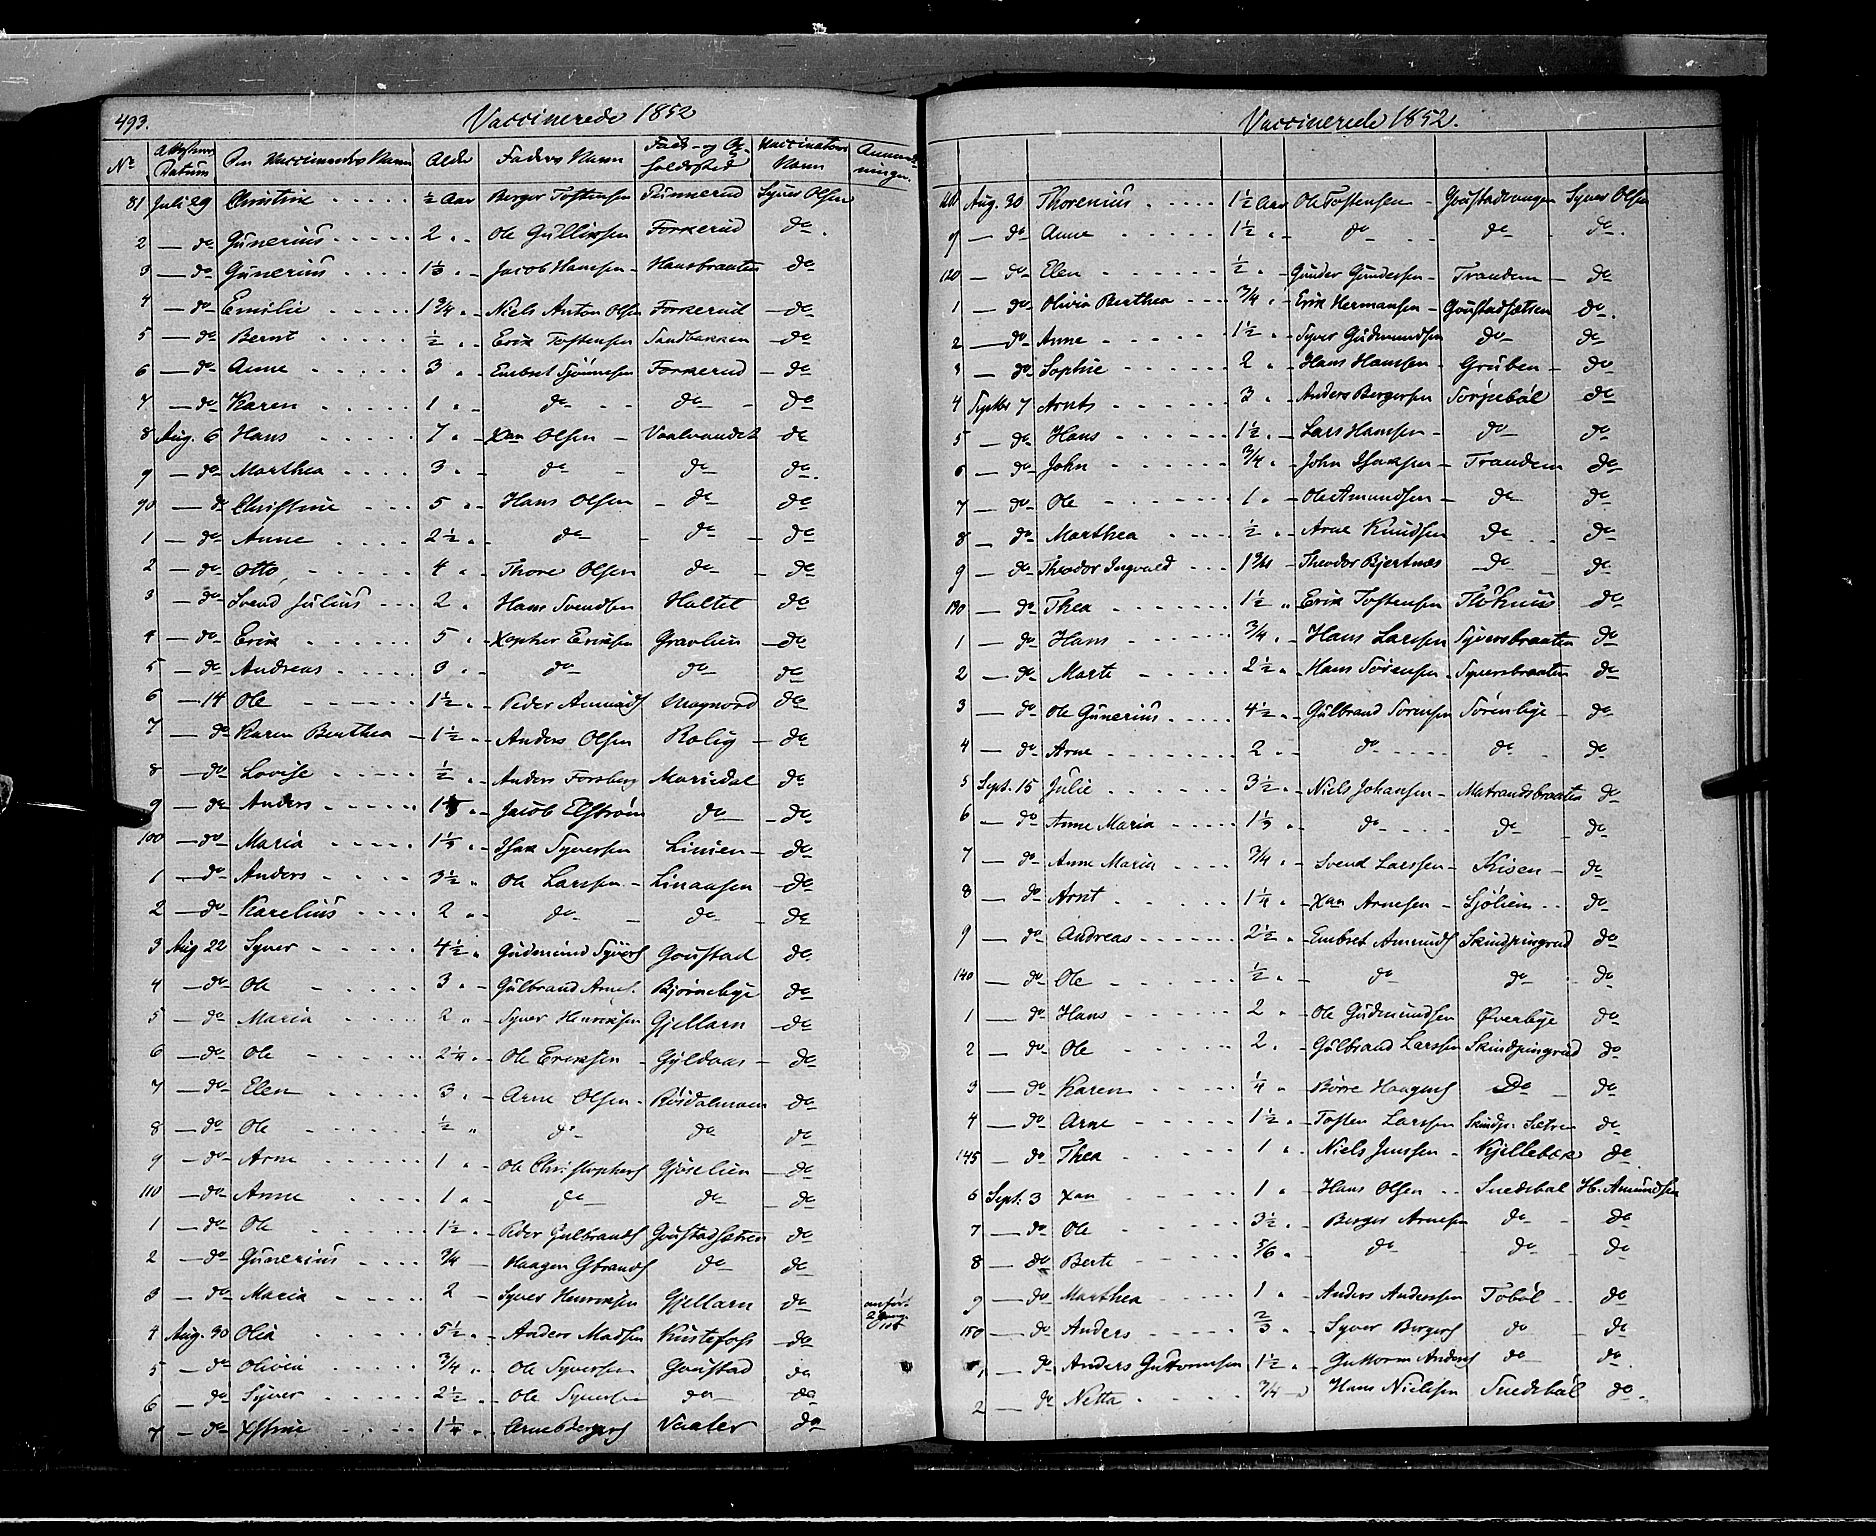 493. Vaccinerede 1852
No Attestens Datum Den Vaccineredes Navn Alder Faders Navn Føde- og Opholdssted Vaccinateurs Navn Anmærkninger
81 Juli 29 Christine ½ Aar Berger Tostensen Punnerud Syver Olsen
2 — do Gunerius 2 „ Ole Gulliksen Forkerud do
3 — do Gunerius 1⅓ „ Jacob Hansen Hansbraaten do
4 — do Emilie 1¾ „ Niels Anton Olsen Forkerud do
5 — do Bernt ½ „ Erik Tostensen Sandbakken do
6 — do Anne 3 „ Embret Forkerud do
7 — do Karen 1 „ do do do
8 Aug. 6 Hans 7 „ Xan Olsen Vaalvandet do
9 — do Marthea 3 „ do do do
90 — do Christine 5 „ Hans Olsen do do
1 — do Anne 2½ „ do do do
2 — do Otto 4 „ Thore Olsen do do
3 — do Svend Julius 2 „ Hans Svendsen Holtet do
4 — do Erik 5 „ Xopher Eriksen Gravlien do
5 — do Andreas 3 „ do do do
6 — 14 Ole 1½ „ Peder Amunds Magnord do
7 — do Karen Berthea 1½ „ Anders Olsen Rolig do
8 — do Lovise ½ „ Anders Forsberg Mariedal do
9 — do Anders Jacob Elfström do do
100 — do Maria 1½ „ Isak Syversen Linien do
1 — do Anders 3½ „ Ole Larssen Linaasen do
2 — do Karelius 2 „ do do do
3 Aug 22 Syver 4½ „ Gudmund Syvers Goustad do
4 — do Ole 3 „ Gulbrand Arnes. Bjørnebye do
5 — do Maria 2 „ Syver Henriksen Gjellarn do
6 — do Ole 2¼ „ Ole Eriksen Gyldaas do
7 — do Elen 3 „ Arne Olsen Rösdalmoen do
8 — do Ole ½ „ do do do
9 — do Arne 1 „ Ole Christophers Gjöselien do
110 — do Anne 1 „ do do do
1 — do Ole 1½ „ Peder Gulbrands Goustadsætren do
2 — do Gunerius ¾ Haagen Gbrands do do
3 — do Maria 2 Syver Henriksen Gjellarn do anført 2 Gange
4 Aug. 30 Olia 5½ „ Anders Madsen Kustefoss do
5 — do Olivia ¾ „ Ole Syversen Goustad do
6 — do Syver 2½ „ Ole Syversen do do
7 — do Xstine 1¼ „ Arne Bergers Vaaler do
Vaccinerede 1852.
Aug. 30 Thorenius 1½ Aar Ole Tostensen Goustadvangen Syver Olsen
9 — do Anne 1½ „ do do do
120 — do Elen ½ „ Gunder Gundersen Trandem do
1 — do Olivia Berthea ¾ „ Erik Hermansen Goustadsætren do
2 — do Anne 1½ „ Syver Gudmundsen do do
3 — do Sophie 2 „ Hans Hansen Gruben do
4 Septbr 7 Arnts 3 „ Anders Bergersen Torjebøl do
5 — do Hans 1½ „ Lars Hansen do do
6 — do John ¾ „ John Isaksen Trandem do
7 — do Ole 1 „ Ole Amundsen do do
8 — do Marthea ½ „ Arne Knudsen do do
9 — do Theodor Ingvald 1¾ Theodor Bjertnæs do do
130 — do Thea 1½ „ Erik Tostensen do
1 — do Hans ¾ „ Hans Larssen Syversbraaten do
2 — do Marte 2½ „ Hans Sörensen Syversbraaten do
3 — do Ole Gunerius 4½ „ Gulbrand Sorensen Sörenbye do
4 — do Arne 2 „ do do do
5 Sept. 15 Julie 3½ „ Niels Johansen Matrandsbraaten do
6 — do Anne Maria 1⅓ „ do do do
7 — do Anne Maria ¾ „ Svend Larssen Kisen do
8 — do Arnt 1¼ „ Xan Arnesen Sjölien do
9 — do Andreas 2½ „ Embret Amunds Skindpungrud do
140 — do Ole ½ „ do do do
1 — do Hans 2 „ Ole Gudmundsen Øverbye do
2 — do Ole 2 „ Gulbrand Larssen Skindpungrud do
3 — do Karen ¼ „ Börre Haagens Do do
4 — do Arne 1½ „ Tosten Larssen Skindp. Sætre do
145 — do Thea 1 „ Niels Jenssen Kjellebæk do
6 Sept. 3 Xan 1 „ Hans Olsen Snedsbøl H. Amundsen
7 — do Ole 3½ „ Berger Arnesen do do
8 — do Berte 5/6 „ do do do
9 — do Marthea 1 „ Anders Andersen Tobøl do
150 — do Anders ⅔ „ Syver Bergers do do
1 — do Anders Guttormsen 1½ „ Guttorm Anders do do
2 — do Netta ¾ Hans Nielsen Snedsbøl do